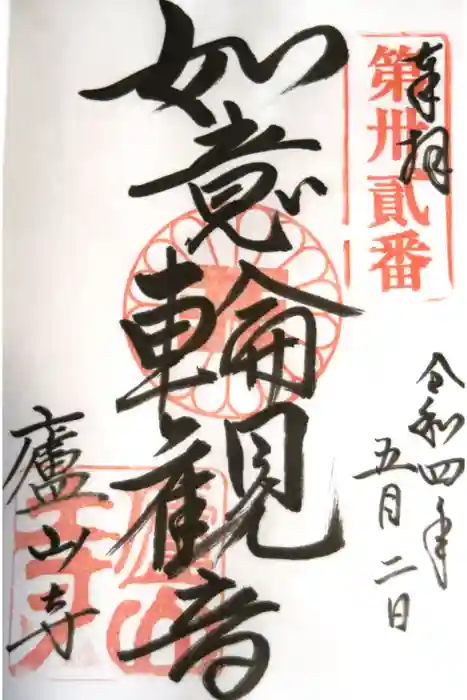 奉拝
第卅貳番
令和四年
五月二日
如意輪観音
廬山寺
廬山寺